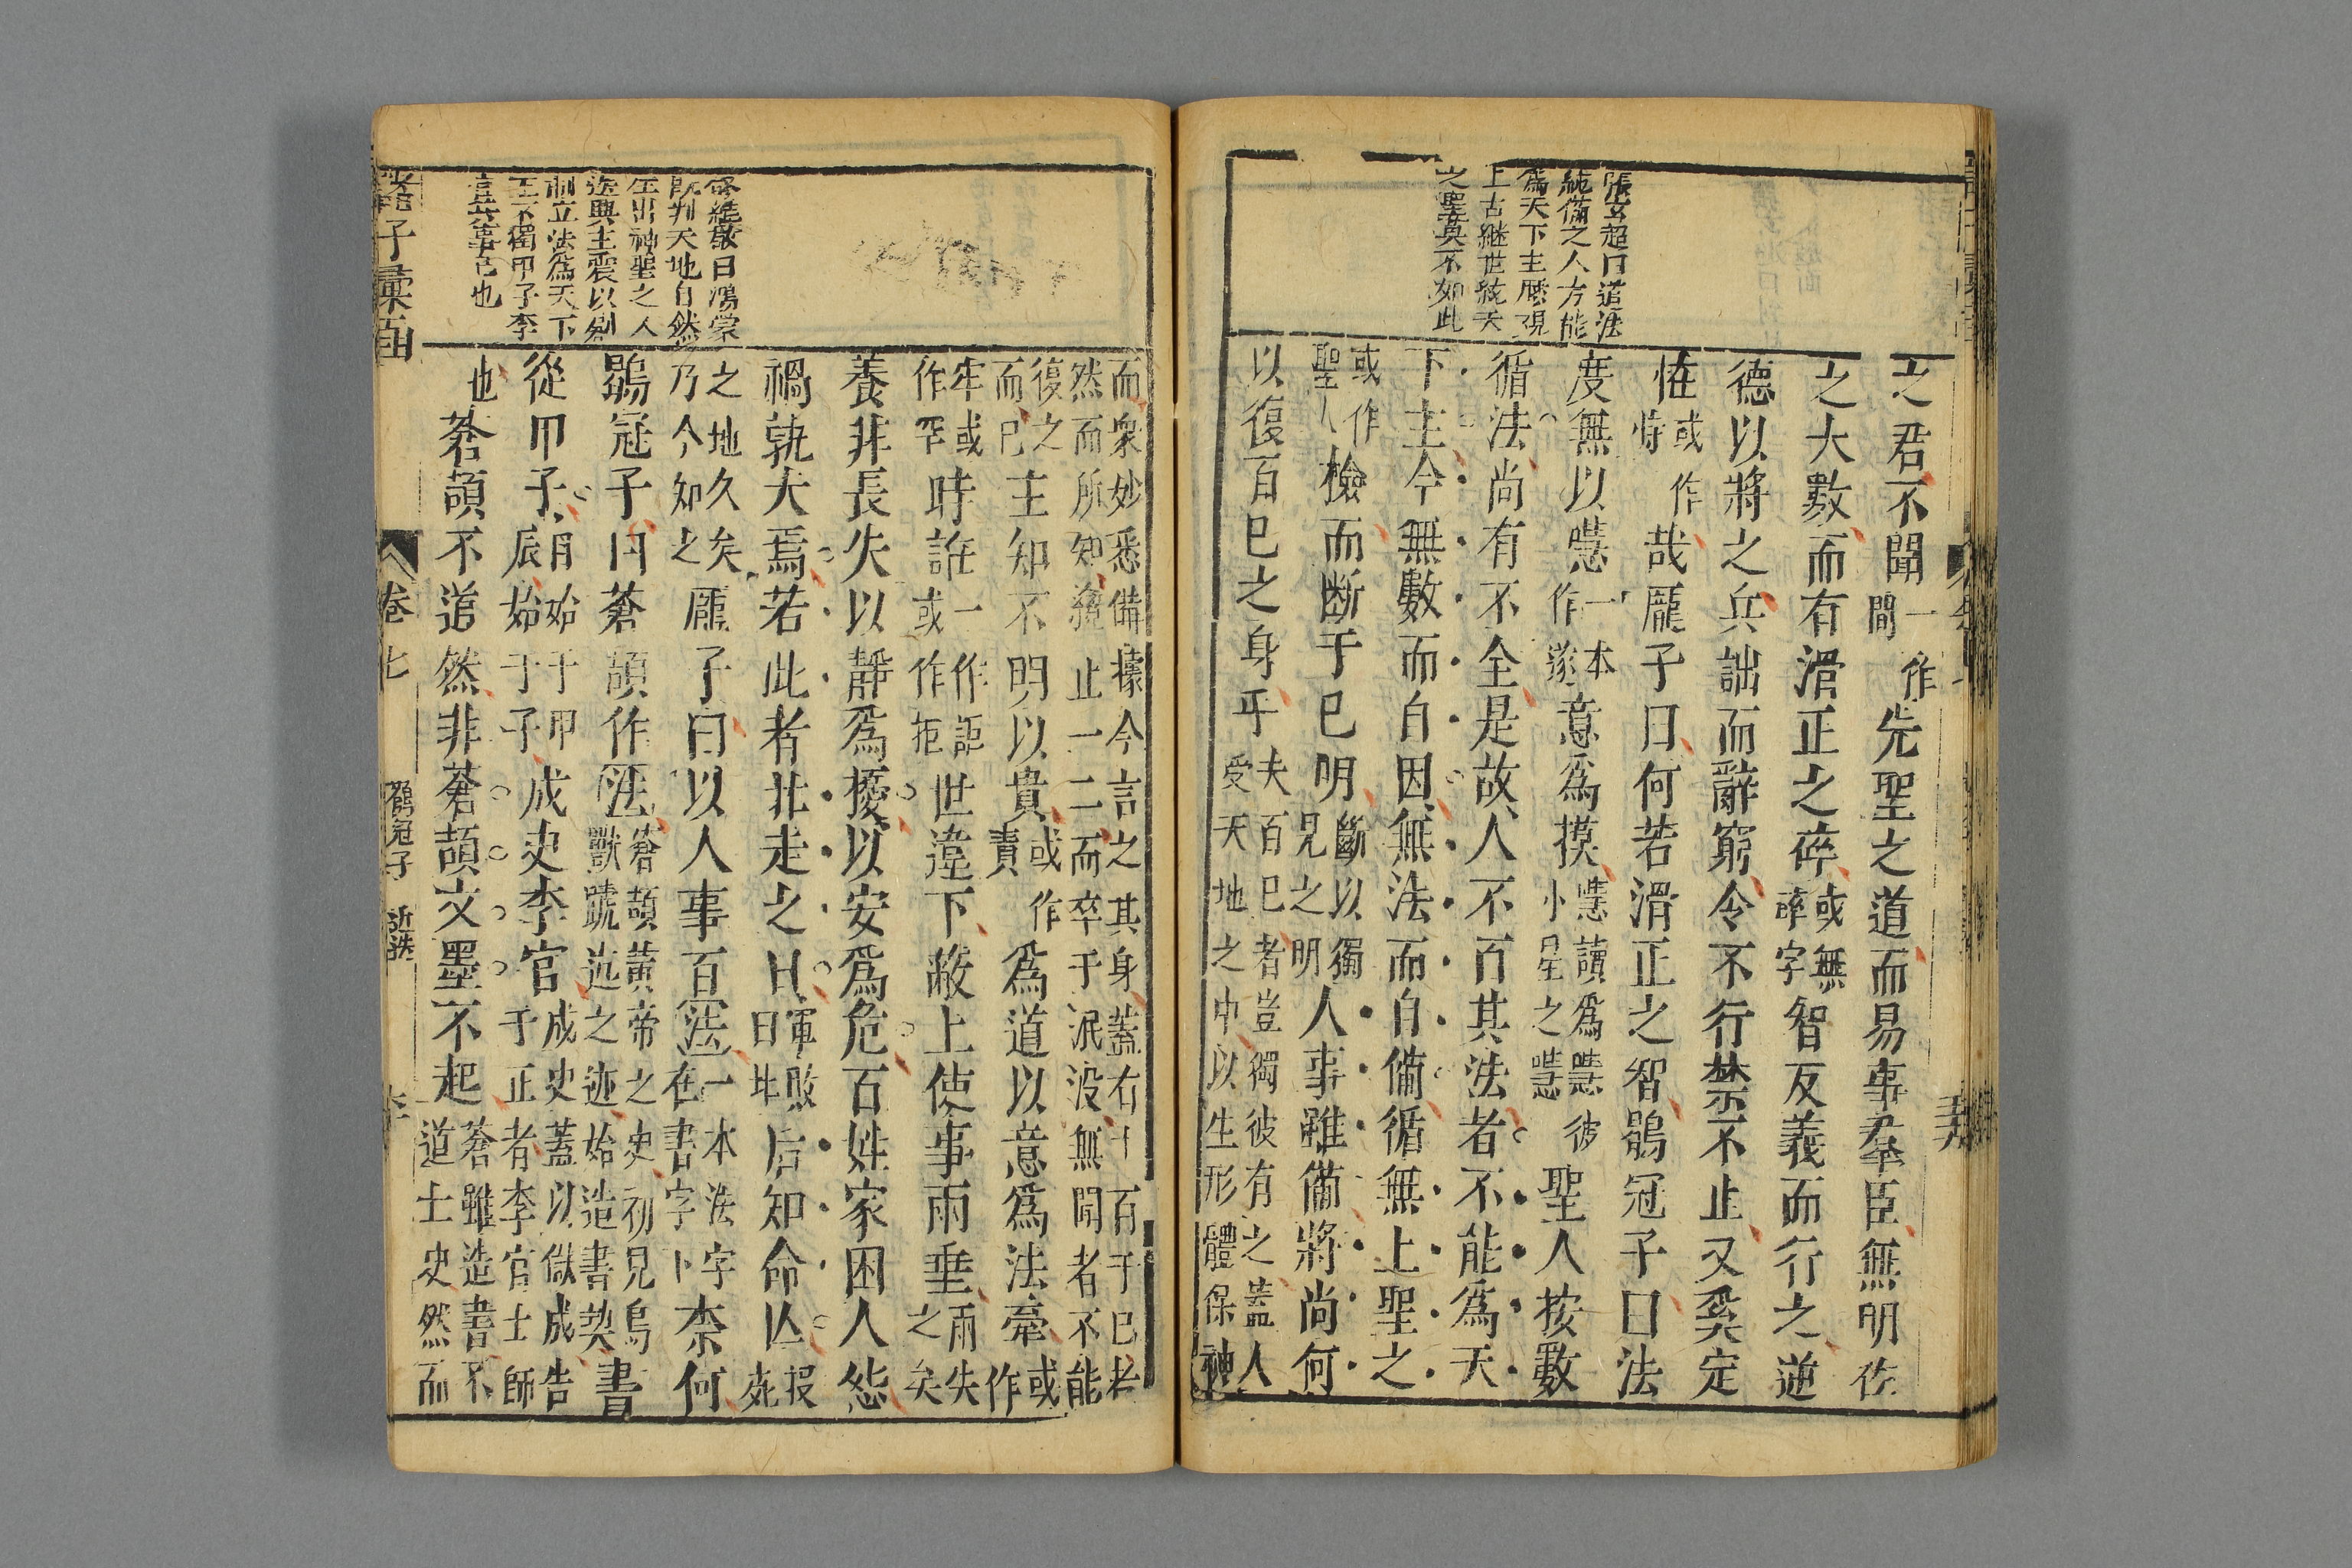 張孟超曰道法
純備之人方能
爲天下主歷現
上古継世統天
之聖莫不如此
之君不聞一作間先聖之道而易事羣臣無明佐
之大數而有滑正之碎或無碎字智反義而行之逆
德以將之兵詘而辭窮令不行禁不止又奚定
恠或作恃哉龐子曰何若滑正之智鶡冠子曰法
度無以噽一本作遂意爲摸噽讀爲嘒彼小星之嘒聖人按數
循法尚有不全是故人不百其法者不能爲天
下主今無數而自因無法而自備循無上聖之
或作聖人檢而断于巳明斷以獨見之明人事雖備將尚何
以復百巳之身乎夫百巳者豈獨彼有之蓋人受天地之中以生形體保神
而衆妙悉備據今言之其身蓋右十百于巳者
然而所知適止一二而卒于泯没無聞者不能
復之而巳主知不明以貴或作責爲道以意爲法牽或作
牢或作罕時誑一作詎或作拒世遳下蔽上使事兩垂兩失之矣
養非長失以靜爲擾以安爲危百姓家困人怨
禍孰大焉若此者北走之日軍敗曰北后知命亾报死
之地久矣乃今知之龐子曰以人事百法一本法字在書字卜柰何
鶡冠子曰蒼頡作法蒼頡黃帝之史初見鳥獸蹏迒之迹始造書契書
從甲子子肙始于甲辰始于子成史李官成史蓋以獄成告于正者李官士師
也蒼頡不道然非蒼頡文墨不起蒼雖造書不道士史然而
佟繼敬曰鴻蒙
旣判天地自然
生出神聖之人
迭興主震以刱
制立法爲天下
主不獨甲子李
官獄事已也
諸子彙函
卷七
鶡冠子 近迭